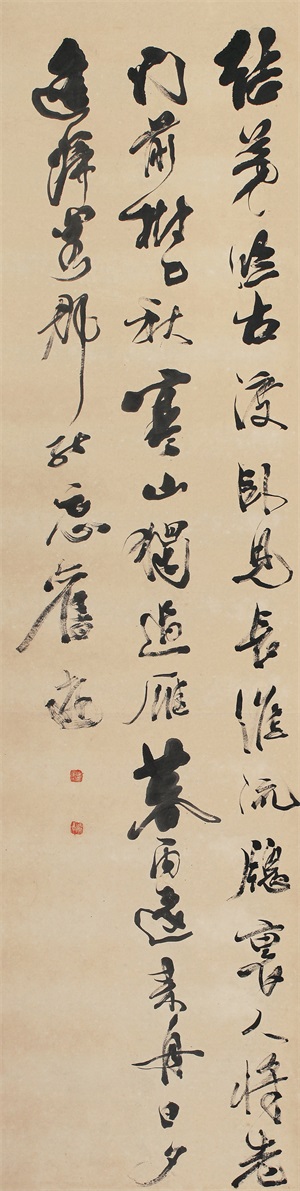 結茅臨古渡臥見長淮流牕裏人將老
門前樹已秋寒山獨過雁暮雨遠來舟日夕
逢歸客那能忘舊遊